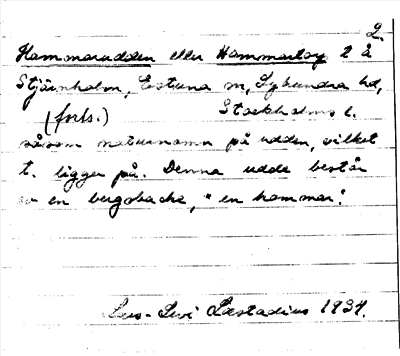 2
Hammarudden eller Hammartorp t å
Stjärnholm, Estuna sn, Lyhundra hd,
(forts.) Stockholms l.
såsom naturnamn på udden, vilket
t. ligger på. Denna udde består
av en bergsbacke, "en hammar".
Lars-Levi Læstadius 1934.